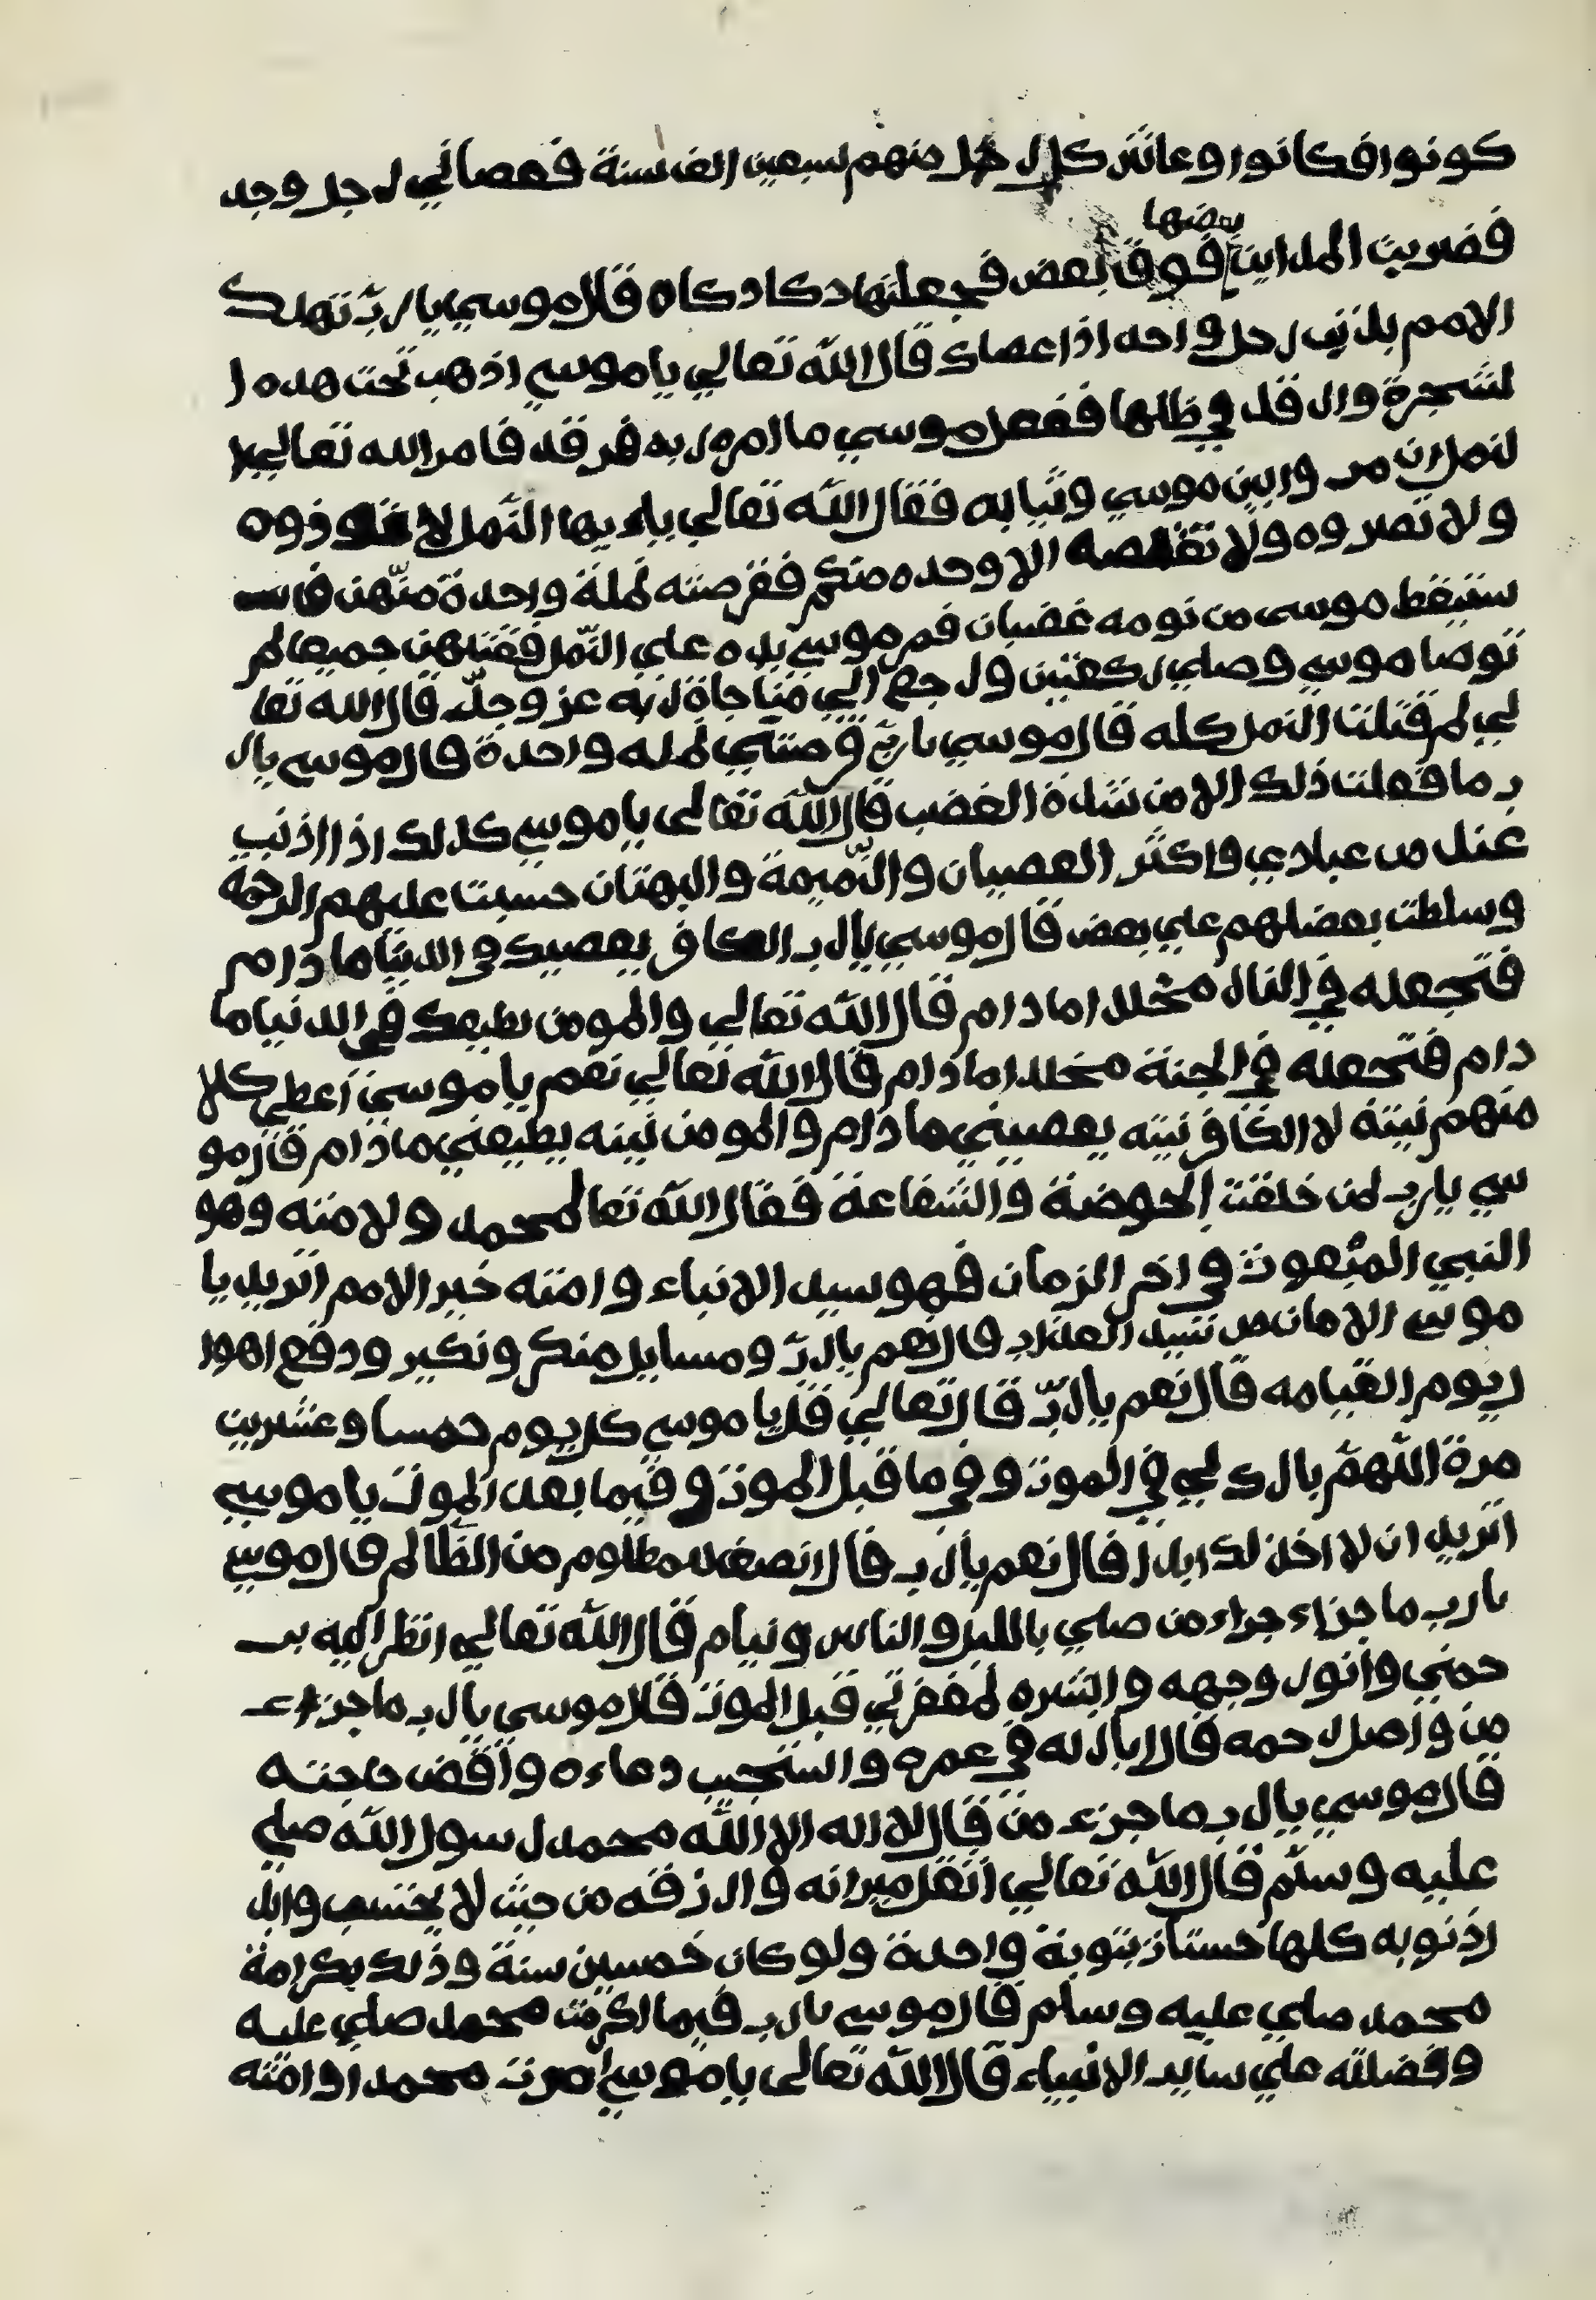 كونوا فكانوا وعاش كل رجل منهم سبعين الف سنة فعصاني رجل وحد
فضربت المداين بعضها فوق بعض فجعلتها دكا دكاه قال موسي يا رب تهلك
الامم بذنب رجل واحد اذا عصاك قال الله تعالي يا موسي اذهب تحت هده ا
لشجرة وارقد في ظلها ففعل موسي ما امره ربه فرقد فامر الله تعالي ا
لنمل ان مر وابين موسي وثيابه فقال الله تعالي يايها النمل لا توذوه
ولا تضروه ولا تقرصه الا وحده منكم فقرصته نملة واحدة منهن فاسـ
ستيقظ موسى من نومه غضبان فمر موسي يده علي النمل فقتلهن جميعا لم
توضا موسي وصلي ركعتين ورجع الي مناجاة ربه عز وجل قال الله تعا
لي لم قتلت النمل كله قال موسي يا رب قرصتني نمله واحدة قال موسي يا ر
ب ما فعلت ذلك الا من شدة الغضب قال الله تعالى يا موسي كذلك اذا اذنب
عند من عبادي واكثر العصيان والنميمة والبهتان حسبت عليهم الرحمة
وسلطت بعضهم علي بعض قال موسي يا رب الكافر يعصيك في الدنيا ما دام
فتجعله في النار مخلدا ما دام قال الله تعالي والمومن يطيعك في الدنيا ما
دام فتجعله في الجنة مخلدا ما دام قال الله تعالي نعم يا موسي اعطي كلا
منهم نيته لا الكافر نيته يعصيني ما دام والمومن نيته يطيعني ما دام قال مو
سي يا رب لمن خلقت الحوضة والشفاعة فقال الله تعا لمحمد ولامته وهو
النبي المبعوث في اخر الزمان فهو سيد الانبياء وامته خير الامم اتريد يا
موسي الامان من شديد العذاب قال نعم يا رب ومسايل منكر ونكير ودفع اهوا
ل يوم القيامه قال نعم يا رب قال تعالي قل يا موسي كل يوم خمسا وعشرين
مرة اللهم بارك لي في الموت وفي ما قبل الموت وفيما بعد الموت يا موسي
اتريد ان لا اخذ لك ابدا قال نعم يا رب قال انصف مظلوم من الظالم قال موسي
يا رب ما جزاء جزاء من صلي بالليل والناس ونيام قال الله تعالي انظر اليه بر
حمتي وانور وجهه وابشره لمغفرتي قبل الموت قال موسي يا رب ما جزاء
من واصل رحمه قال ابارله في عمره واستجيب دعاءه واقض حاجته
قال موسي يا رب ما جزء من قال لا اله الا الله محمد رسول الله صلي
عليه وسلم قال الله تعالي اثقل ميزانه وارزقه من حيث لا يحتسب وابد
ل ذنوبه كلها حسنات بتوبة واحدة ولو كان خمسين سنة وذلك بكرامة
محمد صلي عليه وسلم قال موسي يا رب فبما اكرمت محمد صلي عليه
وفضلته علي ساير الانبياء قال الله تعالى يا موسي امرت محمد اوامته